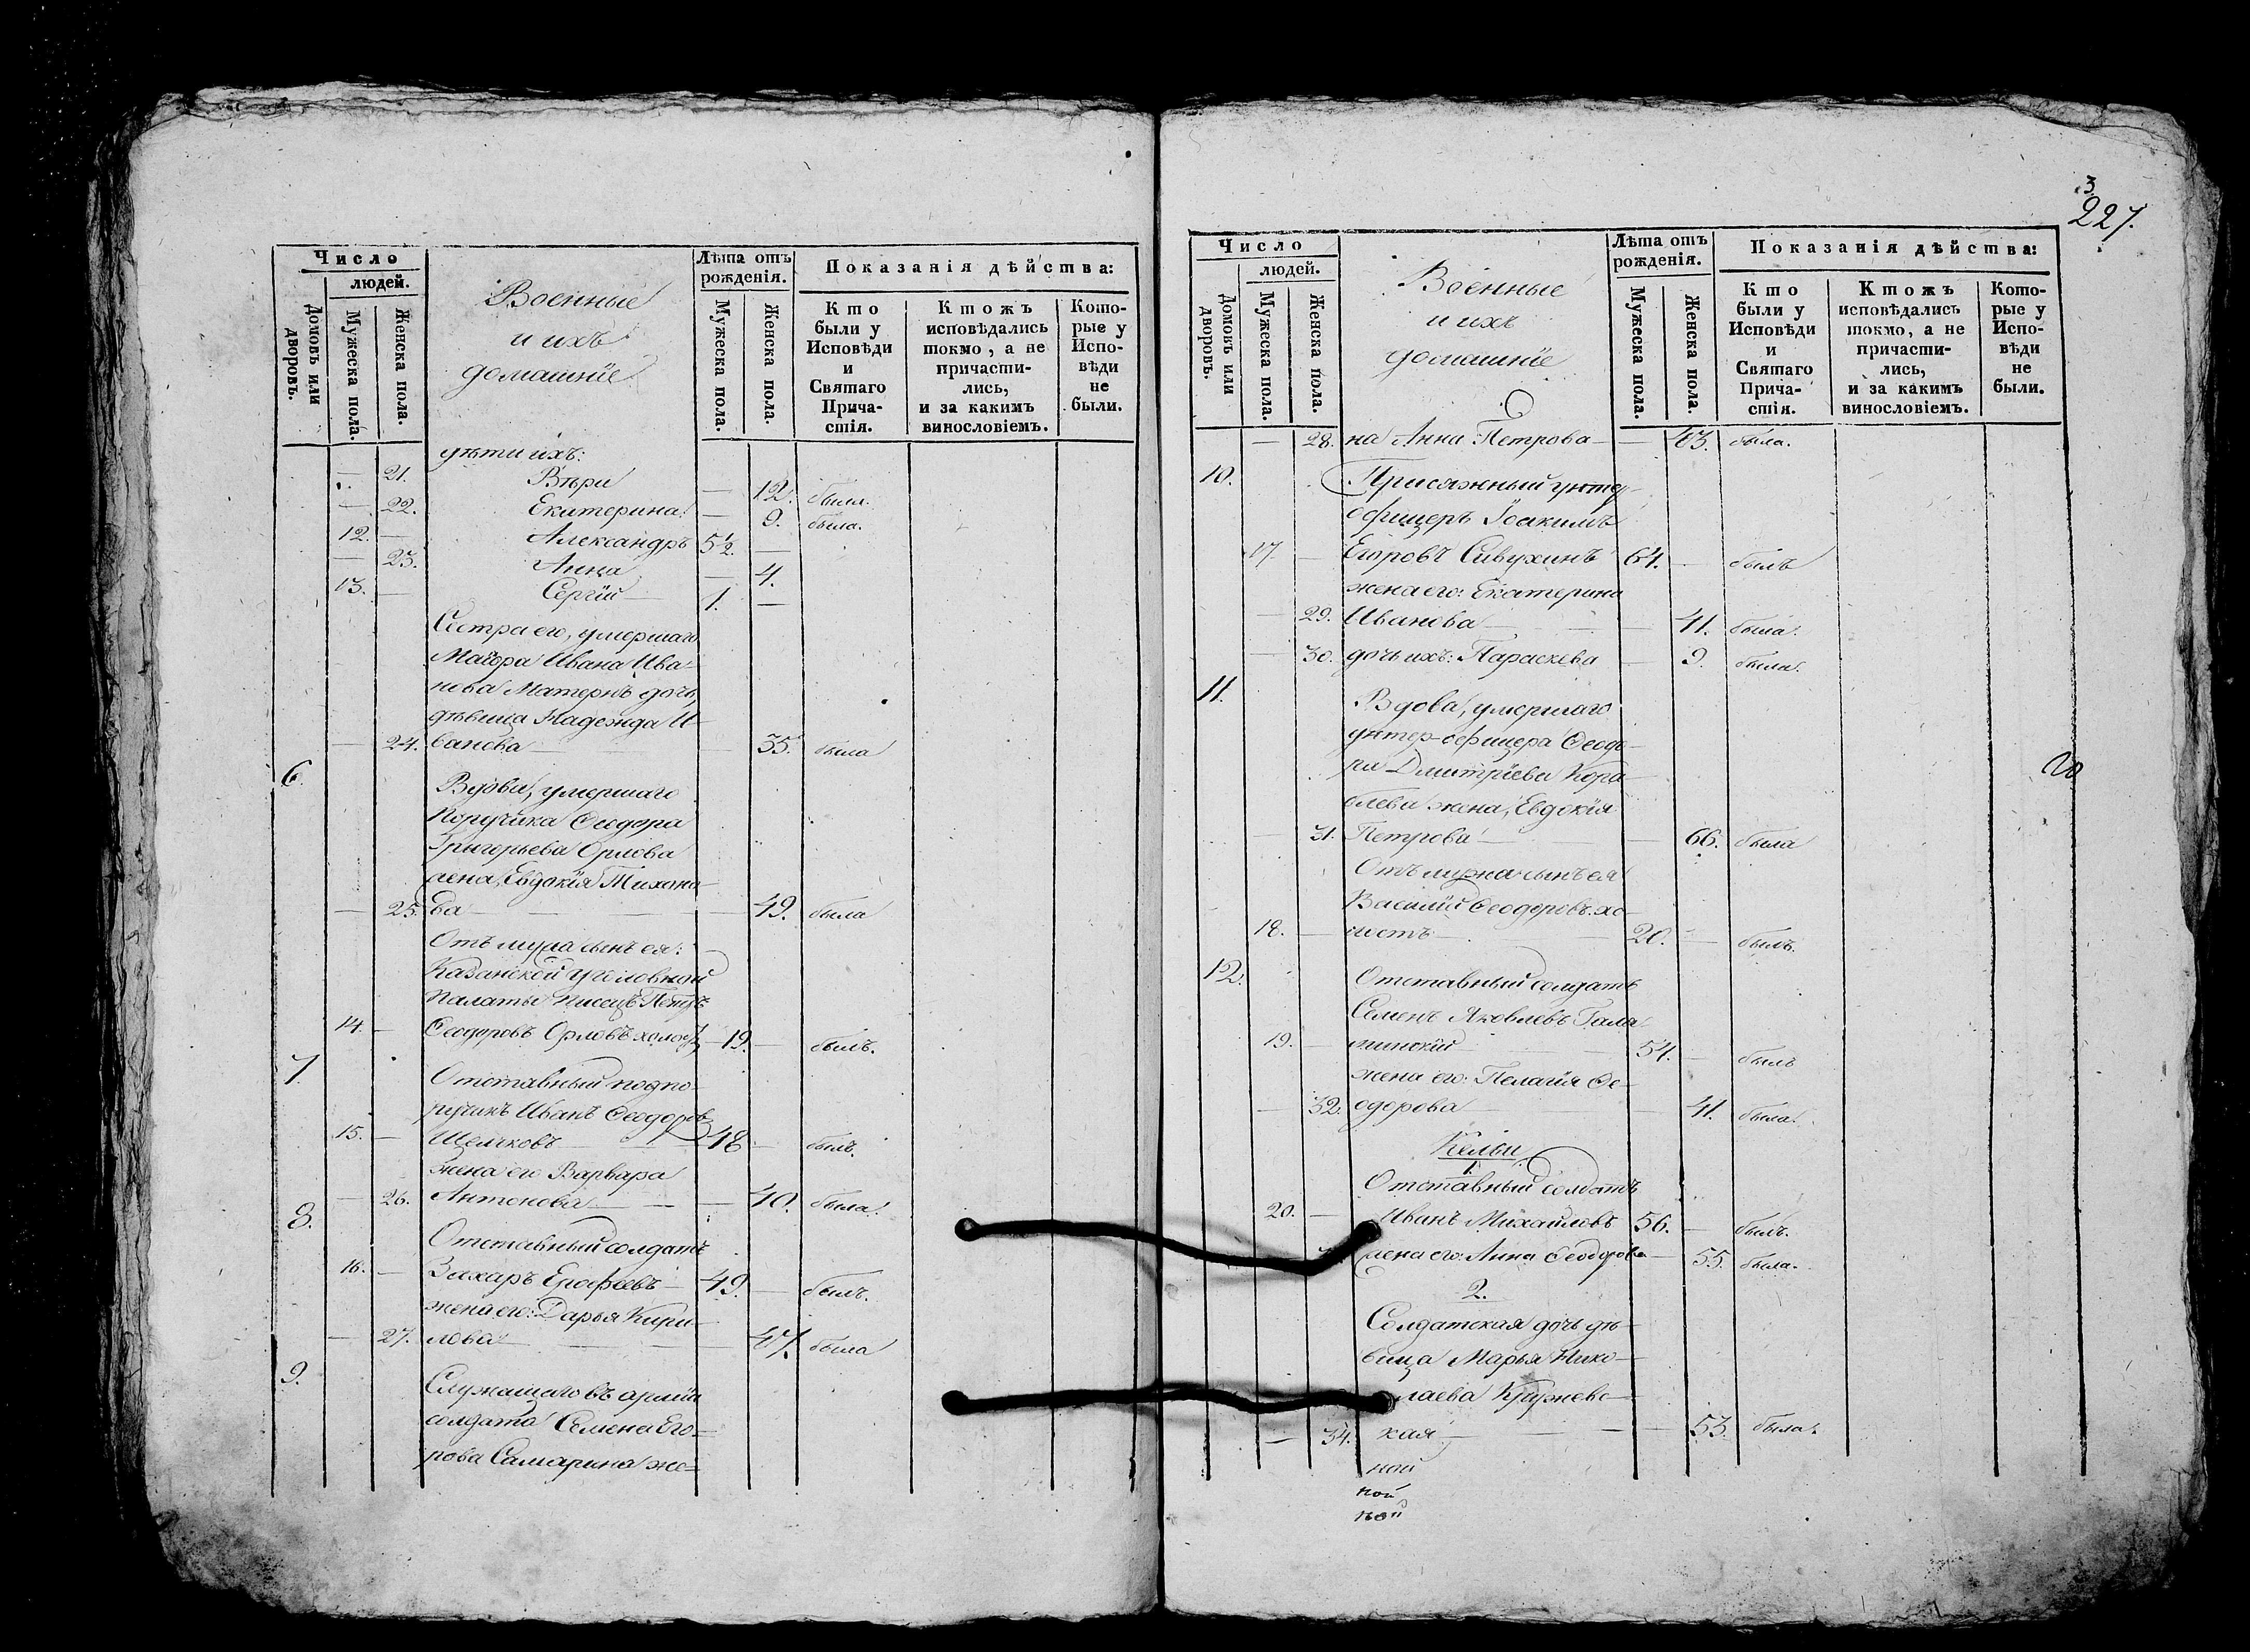 Число
людей.
Домовъ или дворовъ.
Мужеска пола.
Женска пола.
Военные
и ихъ
домашнiе
Лѣта отъ рожденiя.
Мужеска пола.
Женска пола.
Показанiя дѣйства:
Кто были у Исповѣди и Святаго Прича-стiя.
Ктожъ исповѣдались токмо, а не причасти-лись, и за какимъ винословiемъ.
Кото-рые у Испо-вѣди не были.
дѣти ихъ:
— 21. Вѣра — 12. была.
— 22. Екатерина — 9. была.
12. — Александръ 5½. —
— 23. Анна — 4.
13. — Сергiй 1. —
Сестра его, умершаго
Маiора Ивана Ива-
нова Матернъ дочь,
дѣвица Надежда И-
— 24. ванова — 35. была
6.
Вдова, умершаго
Поручика Ѳеодора
Григорьева Орлова
жена, Евдокiя Тихоно-
— 25. ва — 49. была
Отъ мужа сынъ ея:
Казанской уголовной
Палаты писецъ Петръ
14. — Ѳеодоровъ Орловъ холостъ 19. — былъ.
7.
Отставный подпо-
ручикъ Иванъ Ѳеодоровъ
15. — Щелчковъ 48 — былъ.
жена его Варвара
— 26. Антонова — 40. была.
8.
Отставный солдатъ
16. — Захаръ Ерофеевъ 49. — былъ.
жена его: Дарья Кири-
— 27. лова — 47. была
9.
Служащаго въ армiи
солдата Семена Его-
рова Самарина же-
3
227.
Число
людей.
Домовъ или дворовъ.
Мужеска пола.
Женска пола.
Военные
и ихъ
домашнiе
Лѣта отъ рожденiя.
Мужеска пола.
Женска пола.
Показанiя дѣйства:
Кто были у Исповѣди и Святаго Прича-стiя.
Ктожъ исповѣдались токмо, а не причасти-лись, и за какимъ винословiемъ.
Кото-рые у Испо-вѣди не были.
— 28. на Анна Петрова — 43. была.
10. Присяжный унтер-
офицеръ Iоакимъ
17 — Егоровъ Сивухинъ 64. — былъ
жена его: Екатерина
— 29. Иванова — 41. была.
— 30. дочь ихъ: Параскева — 9. была.
11.
Вдова, умершаго
унтер-офицера Ѳеодо-
ра Дмитрiева Кора-
блева жена, Евдокiя
— 31. Петрова — 66. была
Отъ мужа сынъ ея
Василiй Ѳеодоровъ хо-
18. — лостъ 20. — былъ.
12.
Отставный солдатъ
Семенъ Яковлевъ Гала-
19. — 54. — былъ
жена его: Пелагiя Ѳе-
— 32. одорова — 41. была.
Кельи
1.
Отставный солдатъ
20. — Иванъ Михайловъ 56. — былъ.
жена его: Анна Ѳеодорова — 55. была.
2.
Солдатская дочь дѣ-
вица Марья Нико-
лаева Кружевс-
— 34. кая — 53. была.
ной
ной
ной
20